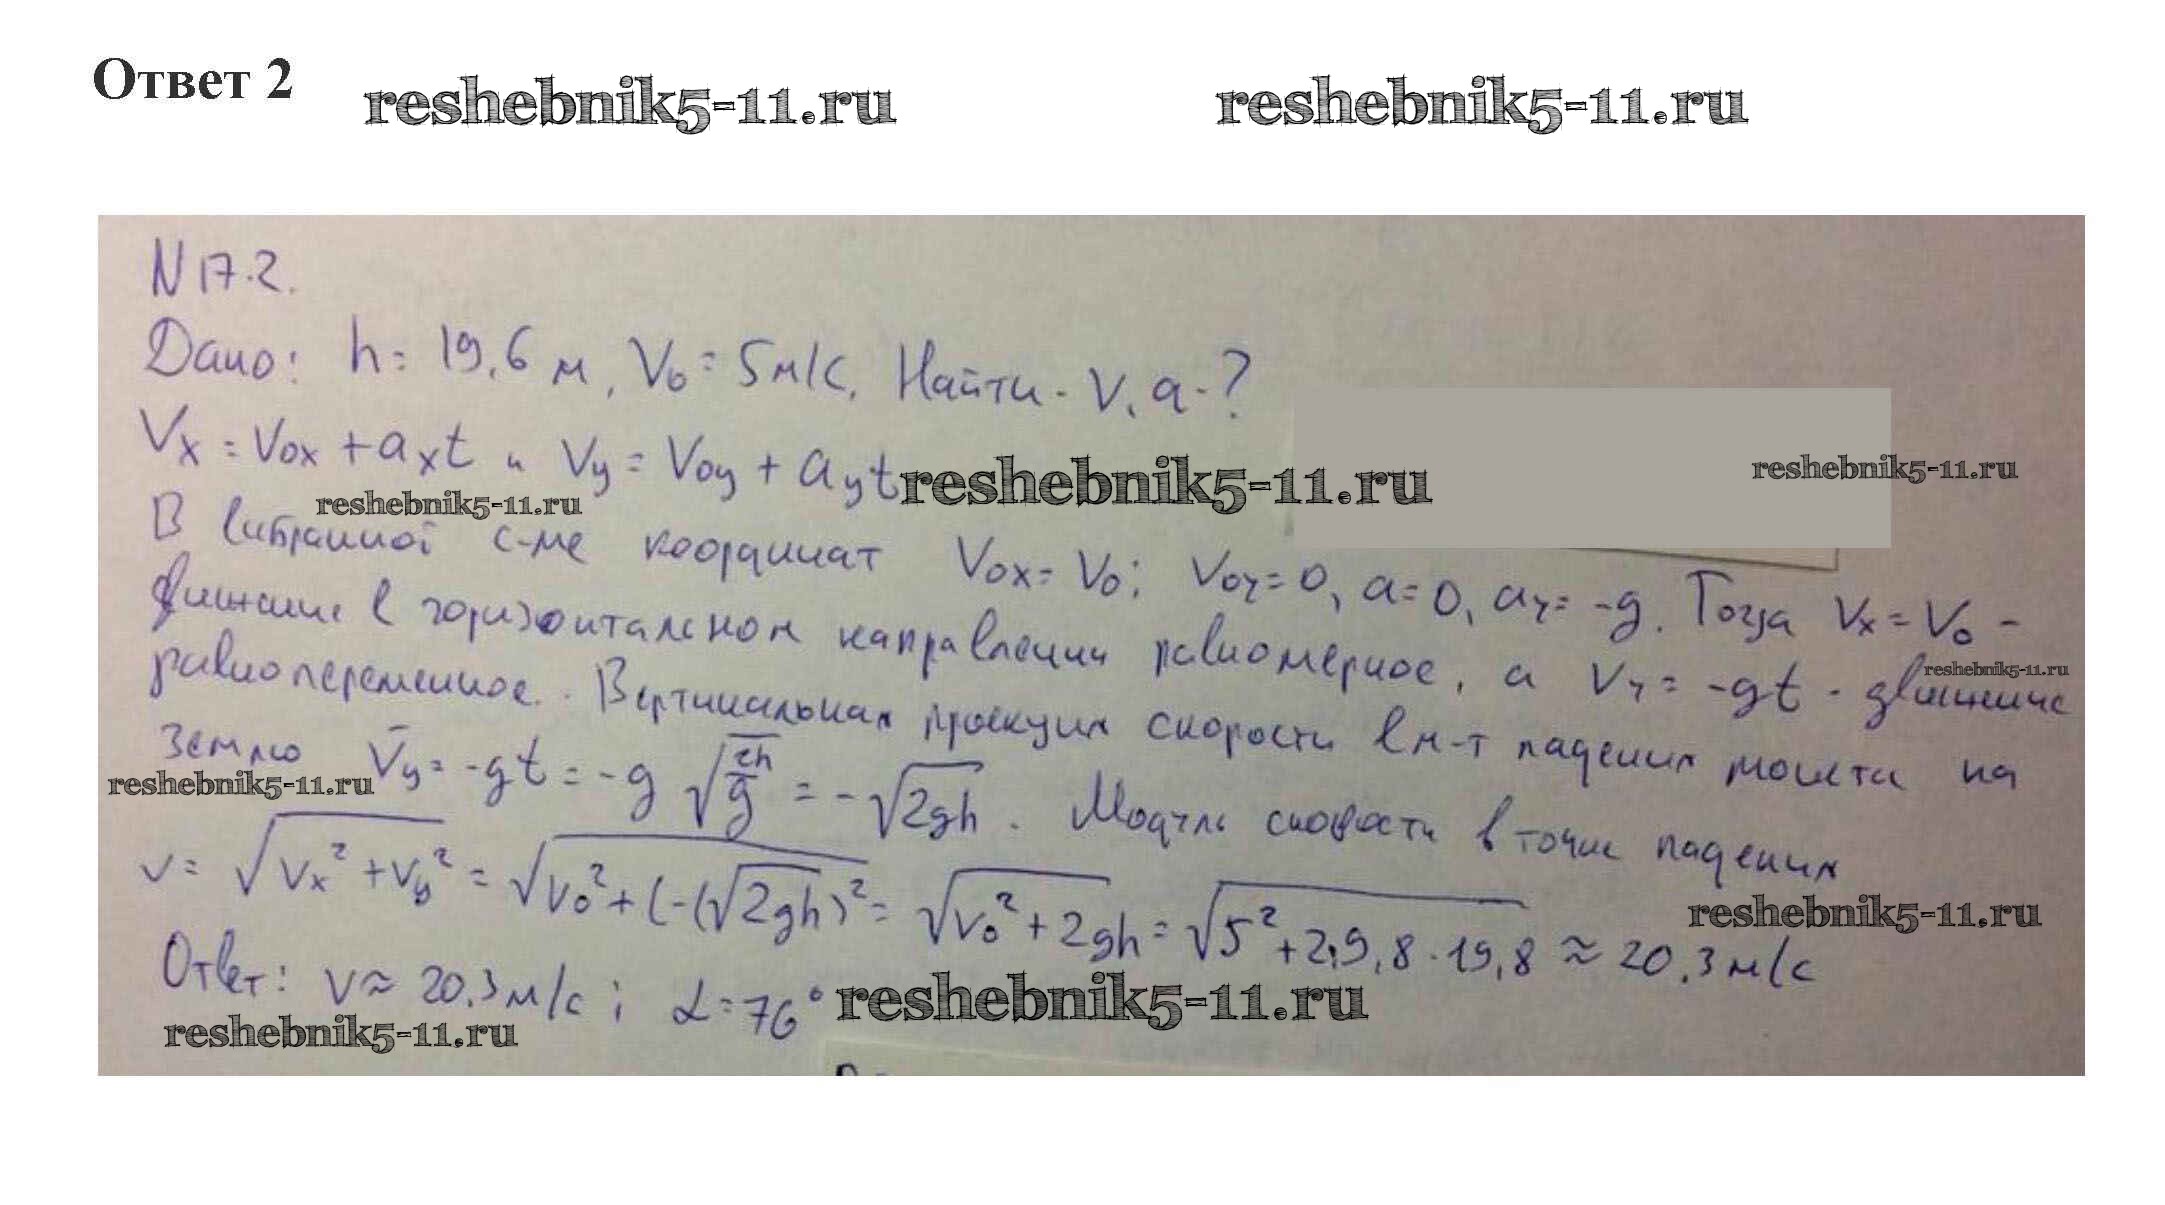 Ответ 2
reshebnik5-11.ru reshebnik5-11.ru
N 17.2.
Дано: h = 19,6 м, V₀ = 5 м/с. Найти - V, α - ?
Vx = Vox + axt и Vy = Voy + ayt
reshebnik5-11.ru reshebnik5-11.ru
reshebnik5-11.ru
В выбранной с-ме координат Vox = V₀; Voy = 0, a = 0, ay = -g. Тогда Vx = V₀ -
движение в горизонтальном направлении равномерное, а Vy = -gt - движение
reshebnik5-11.ru
равнопеременное. Вертикальная проекция скорости в м-т падения монеты на
землю V̄y = -gt = -g √(2h/g) = -√(2gh). Модуль скорости в точке падения
reshebnik5-11.ru
V = √(Vx² + Vy²) = √(V₀² + (-(√2gh)²) = √(V₀² + 2gh) = √(5² + 2,9,8 · 19,8) ≈ 20,3 м/с
reshebnik5-11.ru
Ответ: V ≈ 20,3 м/с; α = 76°
reshebnik5-11.ru
reshebnik5-11.ru